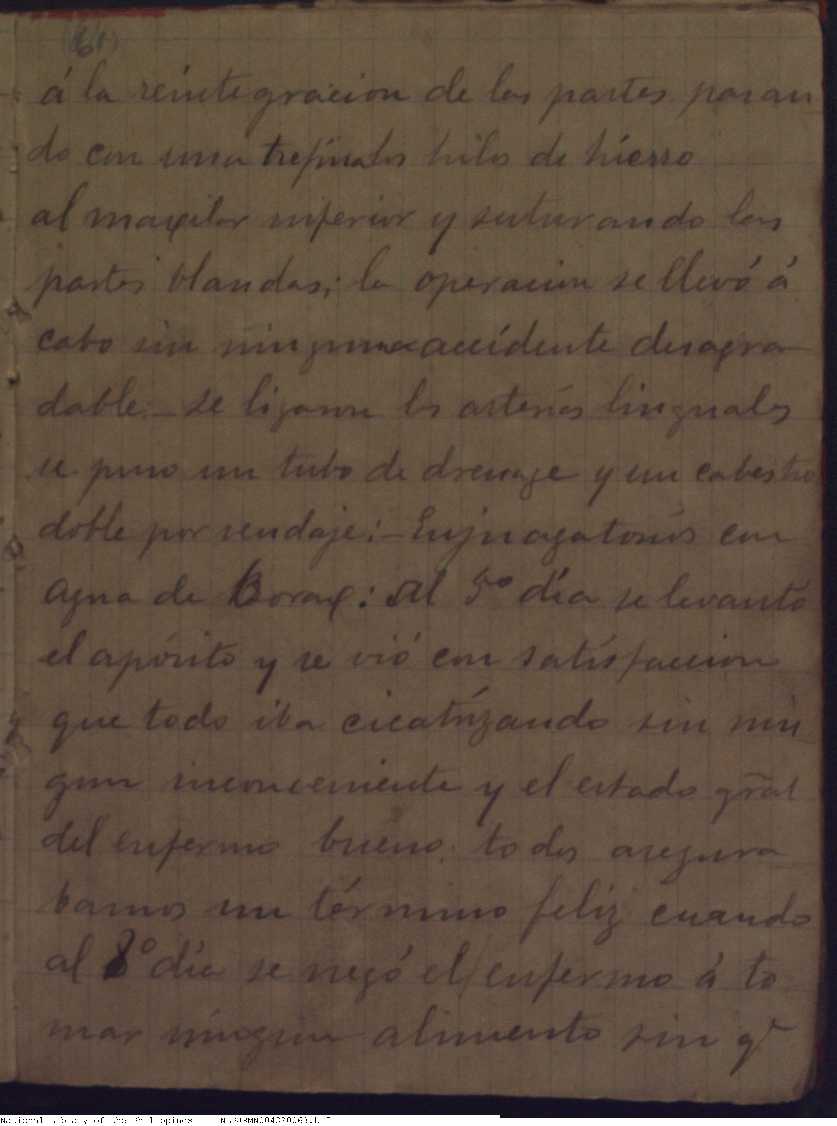 (61)
á la reintegracion de las partes pasan
do con una trefina los hilos de hierro
al maxilar inferior y suturando las
partes blandas; la operacion se llevó á
cabo sin ningun accidente desagra
dable:— se ligaron las arterias linguales
se puso un tubo de drenage y un cabestro
doble por vendaje:— Enjuagatorios con
agua de Borax: Al 5º día se levantó
el apósito y se vió con satisfaccion
que todo iba cicatrizando sin nin
gun inconveniente y el estado gral
del enfermo bueno, todos asegura
bamos un término feliz cuando
al 8º día se negó el enfermo á to
mar ningun alimento sin q^e
National Library of the Philippines